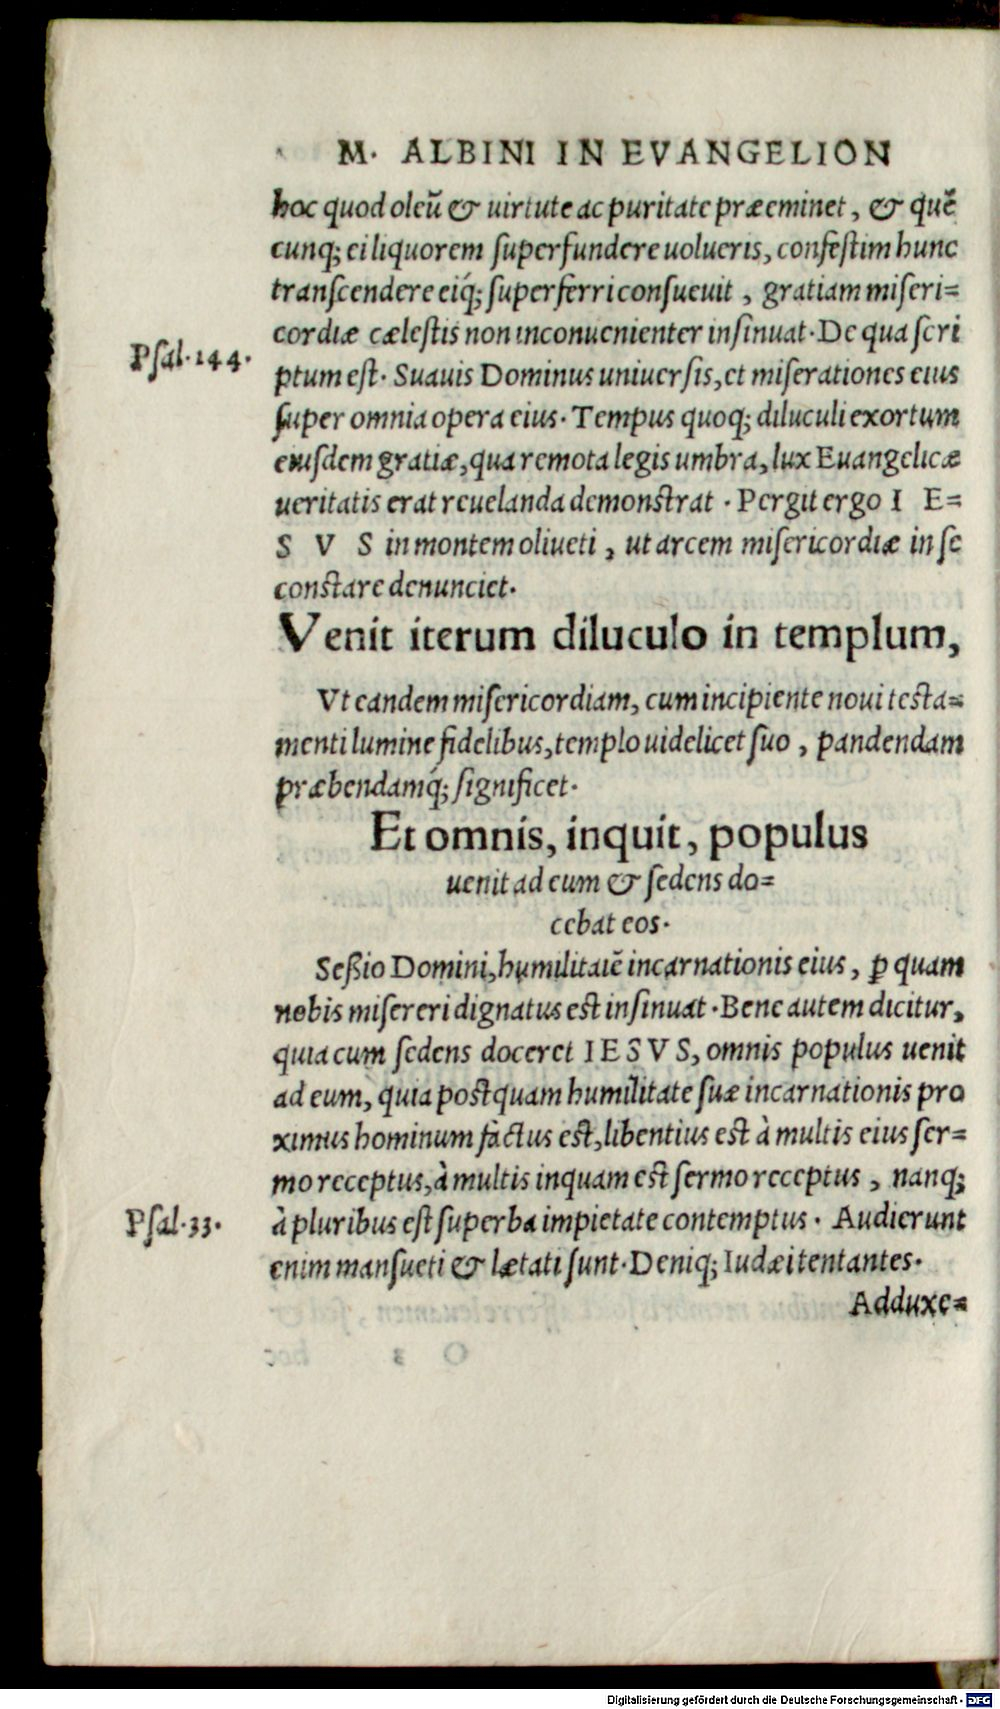 M. ALBINI IN EVANGELION
hoc quod oleū & uirtute ac puritate præeminet, & quē
cunq; ei liquorem superfundere uolueris, confestim hunc
transcendere eiq́; superferri consueuit, gratiam miseri=
cordiæ cælestis non inconuenienter insinuat. De qua scri
Psal. 144.
ptum est. Suauis Dominus uniuersis, et miserationes eius
super omnia opera eius. Tempus quoq; diluculi exortum
eiusdem gratiæ, qua remota legis umbra, lux Euangelicæ
ueritatis erat reuelanda demonstrat. Pergit ergo I E=
S V S in montem oliueti, ut arcem misericordiæ in se
constare denunciet.
Venit iterum diluculo in templum,
Vt eandem misericordiam, cum incipiente noui testa=
menti lumine fidelibus, templo uidelicet suo, pandendam
præbendamq́; significet.
Et omnis, inquit, populus
uenit ad eum & sedens do=
cebat eos.
Seßio Domini, humilitatē incarnationis eius, ꝑ quam
nobis misereri dignatus est insinuat. Bene autem dicitur,
quia cum sedens doceret IESVS, omnis populus uenit
ad eum, quia postquam humilitate suæ incarnationis pro
ximus hominum factus est, libentius est à multis eius ser=
mo receptus, à multis inquam est sermo receptus, nanq;
Psal. 33.
à pluribus est superba impietate contemptus. Audierunt
enim mansueti & lætati sunt. Deniq; Iudæi tentantes.
Adduxe=
Digitalisierung gefördert durch die Deutsche Forschungsgemeinschaft - DFG